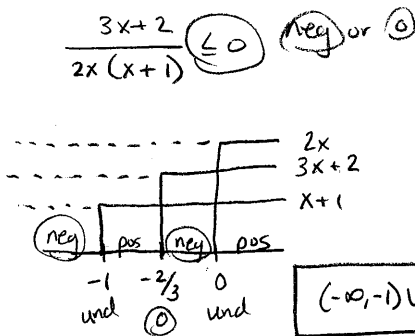 3x+2 / 2x(x+1) ≤ 0 neg or 0
2x
3x+2
x+1
neg pos neg pos
-1 -2/3 0
und 0 und
(-∞,-1) U